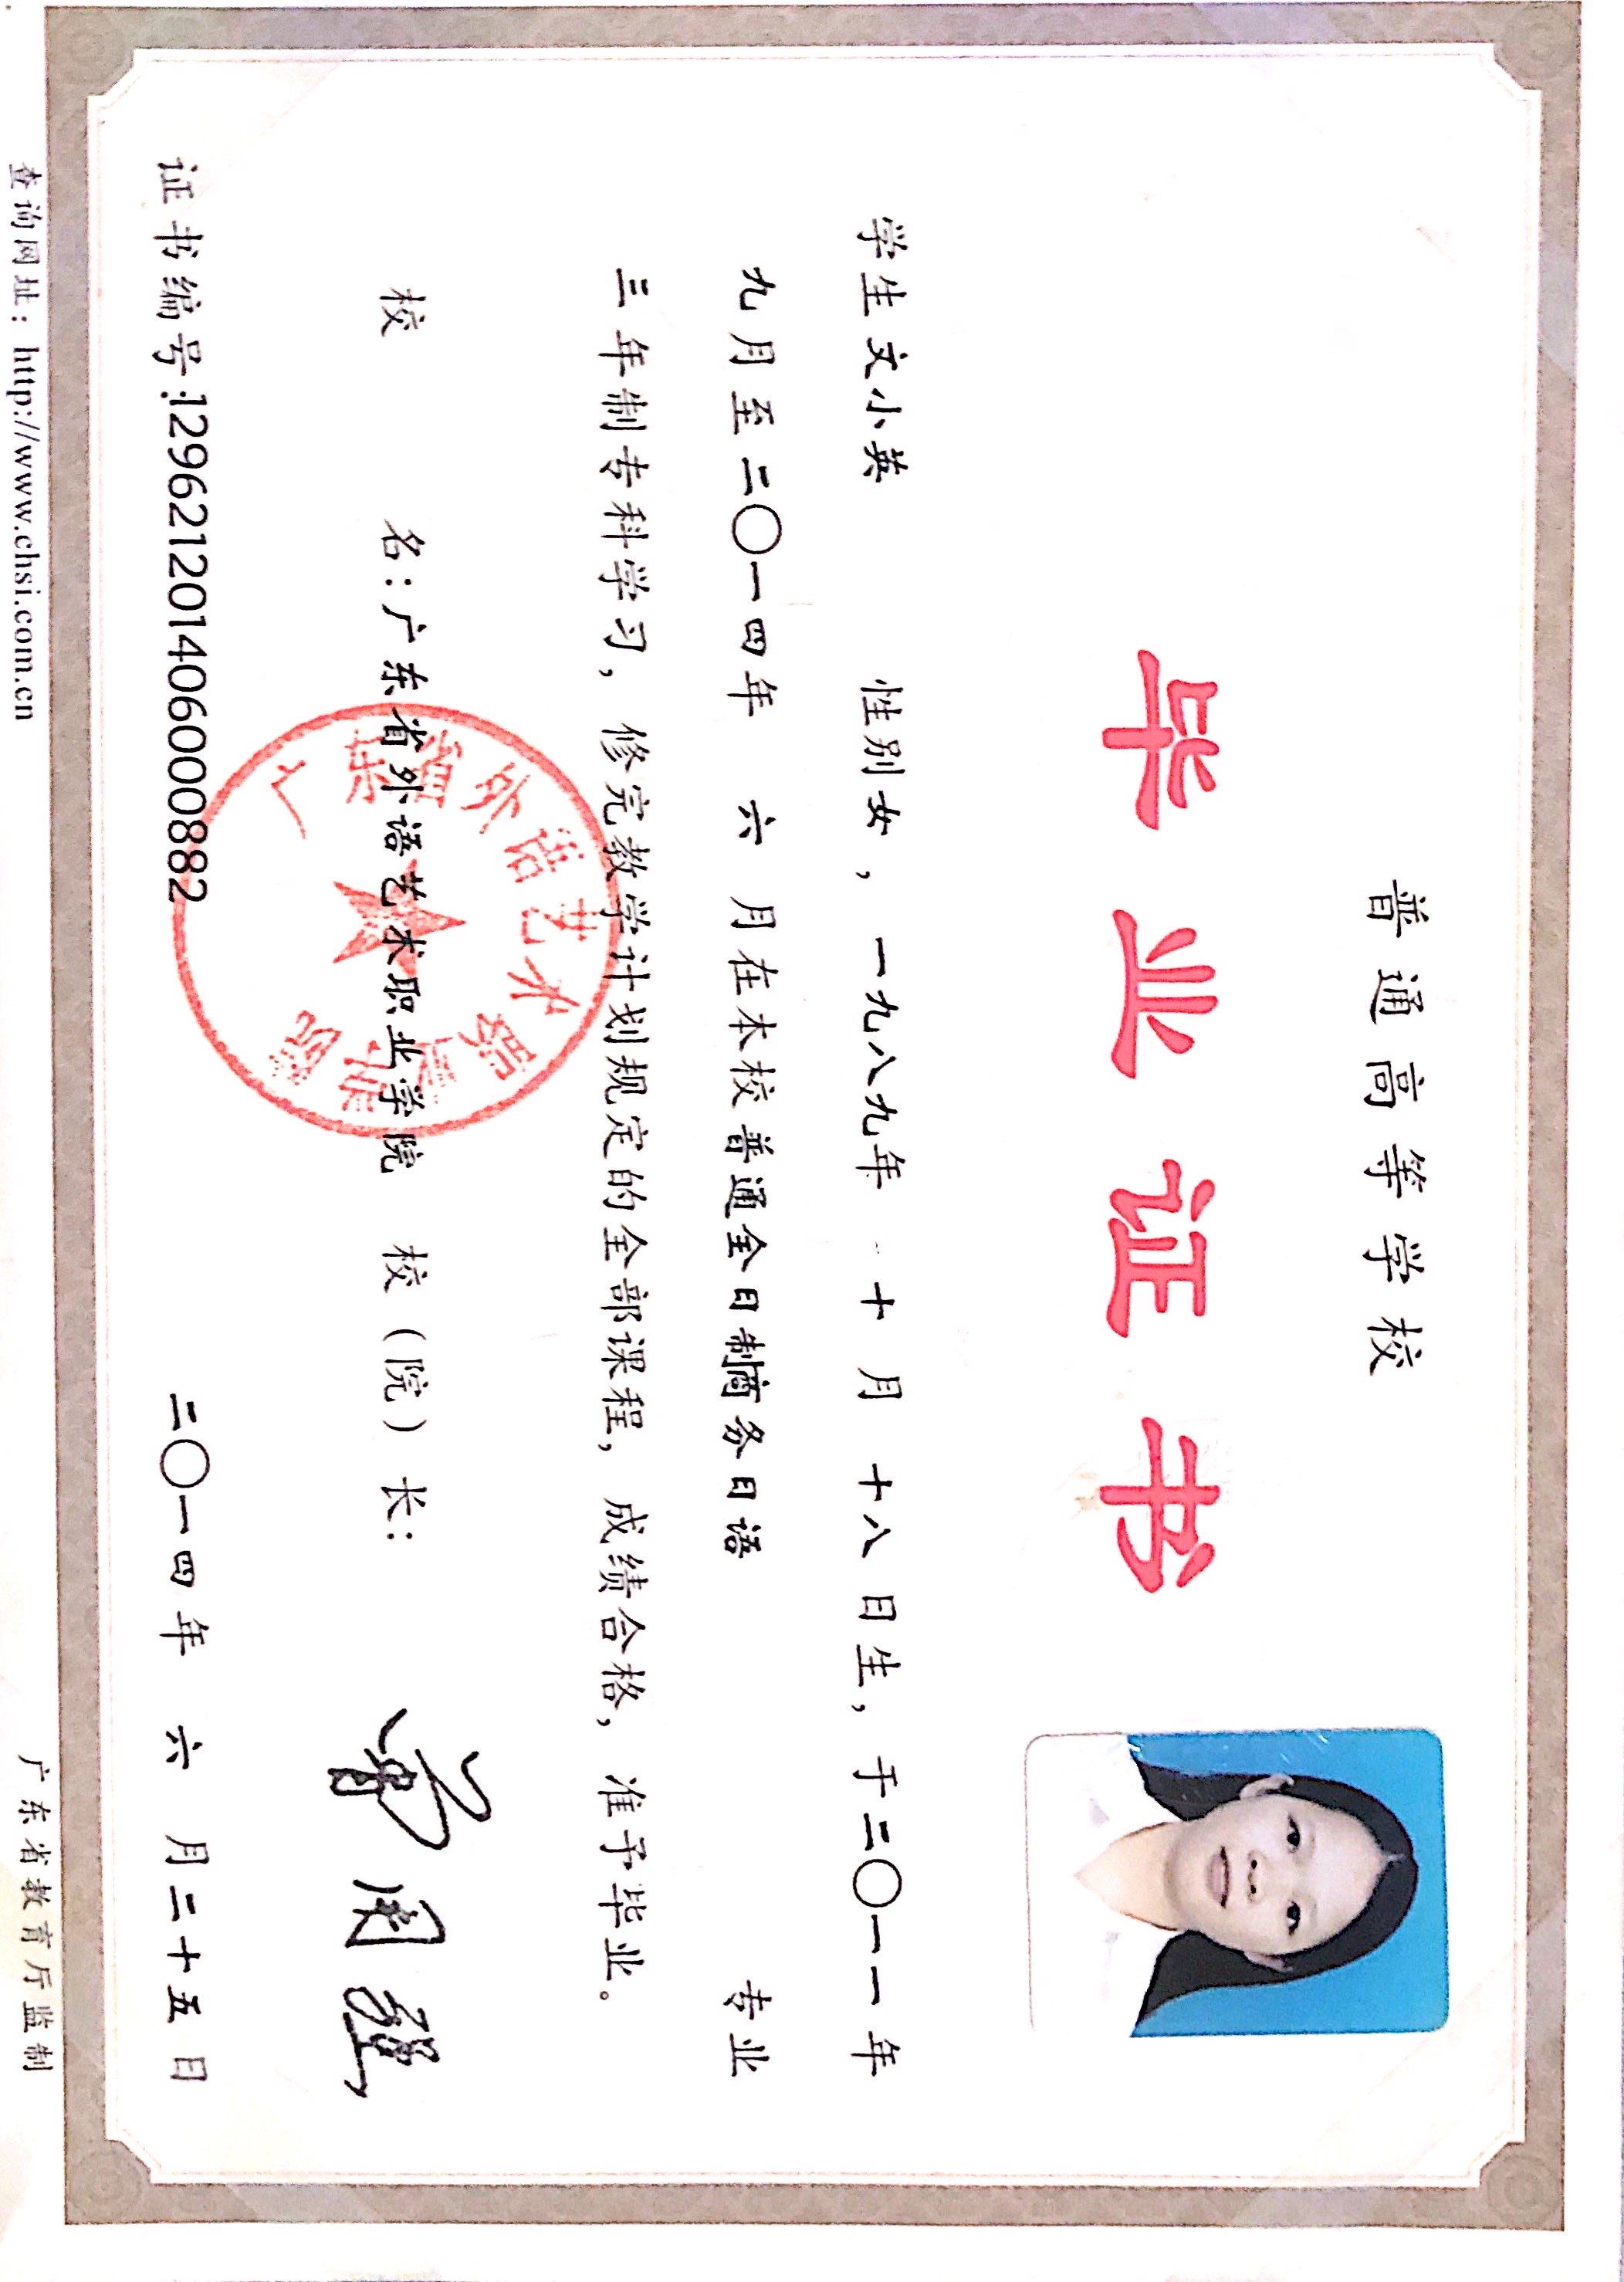 普通高等学校
毕业证书
学生 文小英 性别女，一九八九年 十 月 十八 日生，于二〇一一 年
九月至二〇一四年 六 月在本校普通全日制商务日语 专业
三 年制专科学习，修完教学计划规定的全部课程，成绩合格，准予毕业。
校 名：广东省外语艺术职业学院 校（院）长：
广东省外语艺术职业学院
证书编号：129621201406000882 二〇一四年 六 月二十五日
查询网址：http://www.chsi.com.cn 广东省教育厅监制